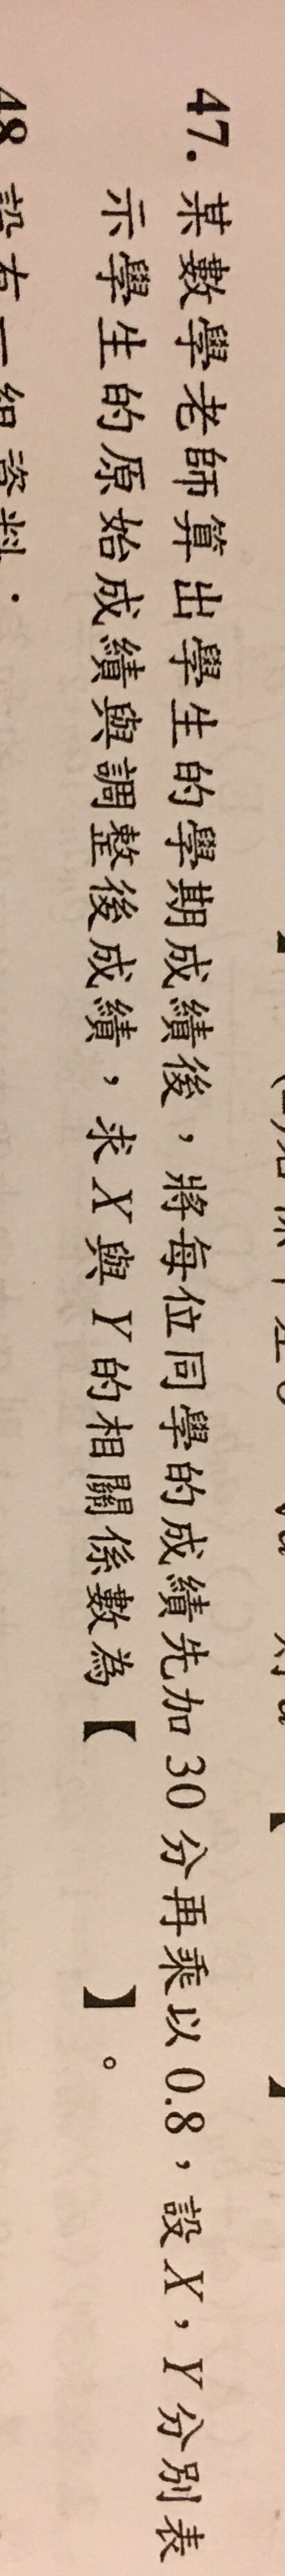 47. 某數學老師算出學生的學期成績後，將每位同學的成績先加 30 分再乘以 0.8，設 X，Y 分別表
示學生的原始成績與調整後成績，求 X 與 Y 的相關係數為【　　　】。
48 設有一組資料：